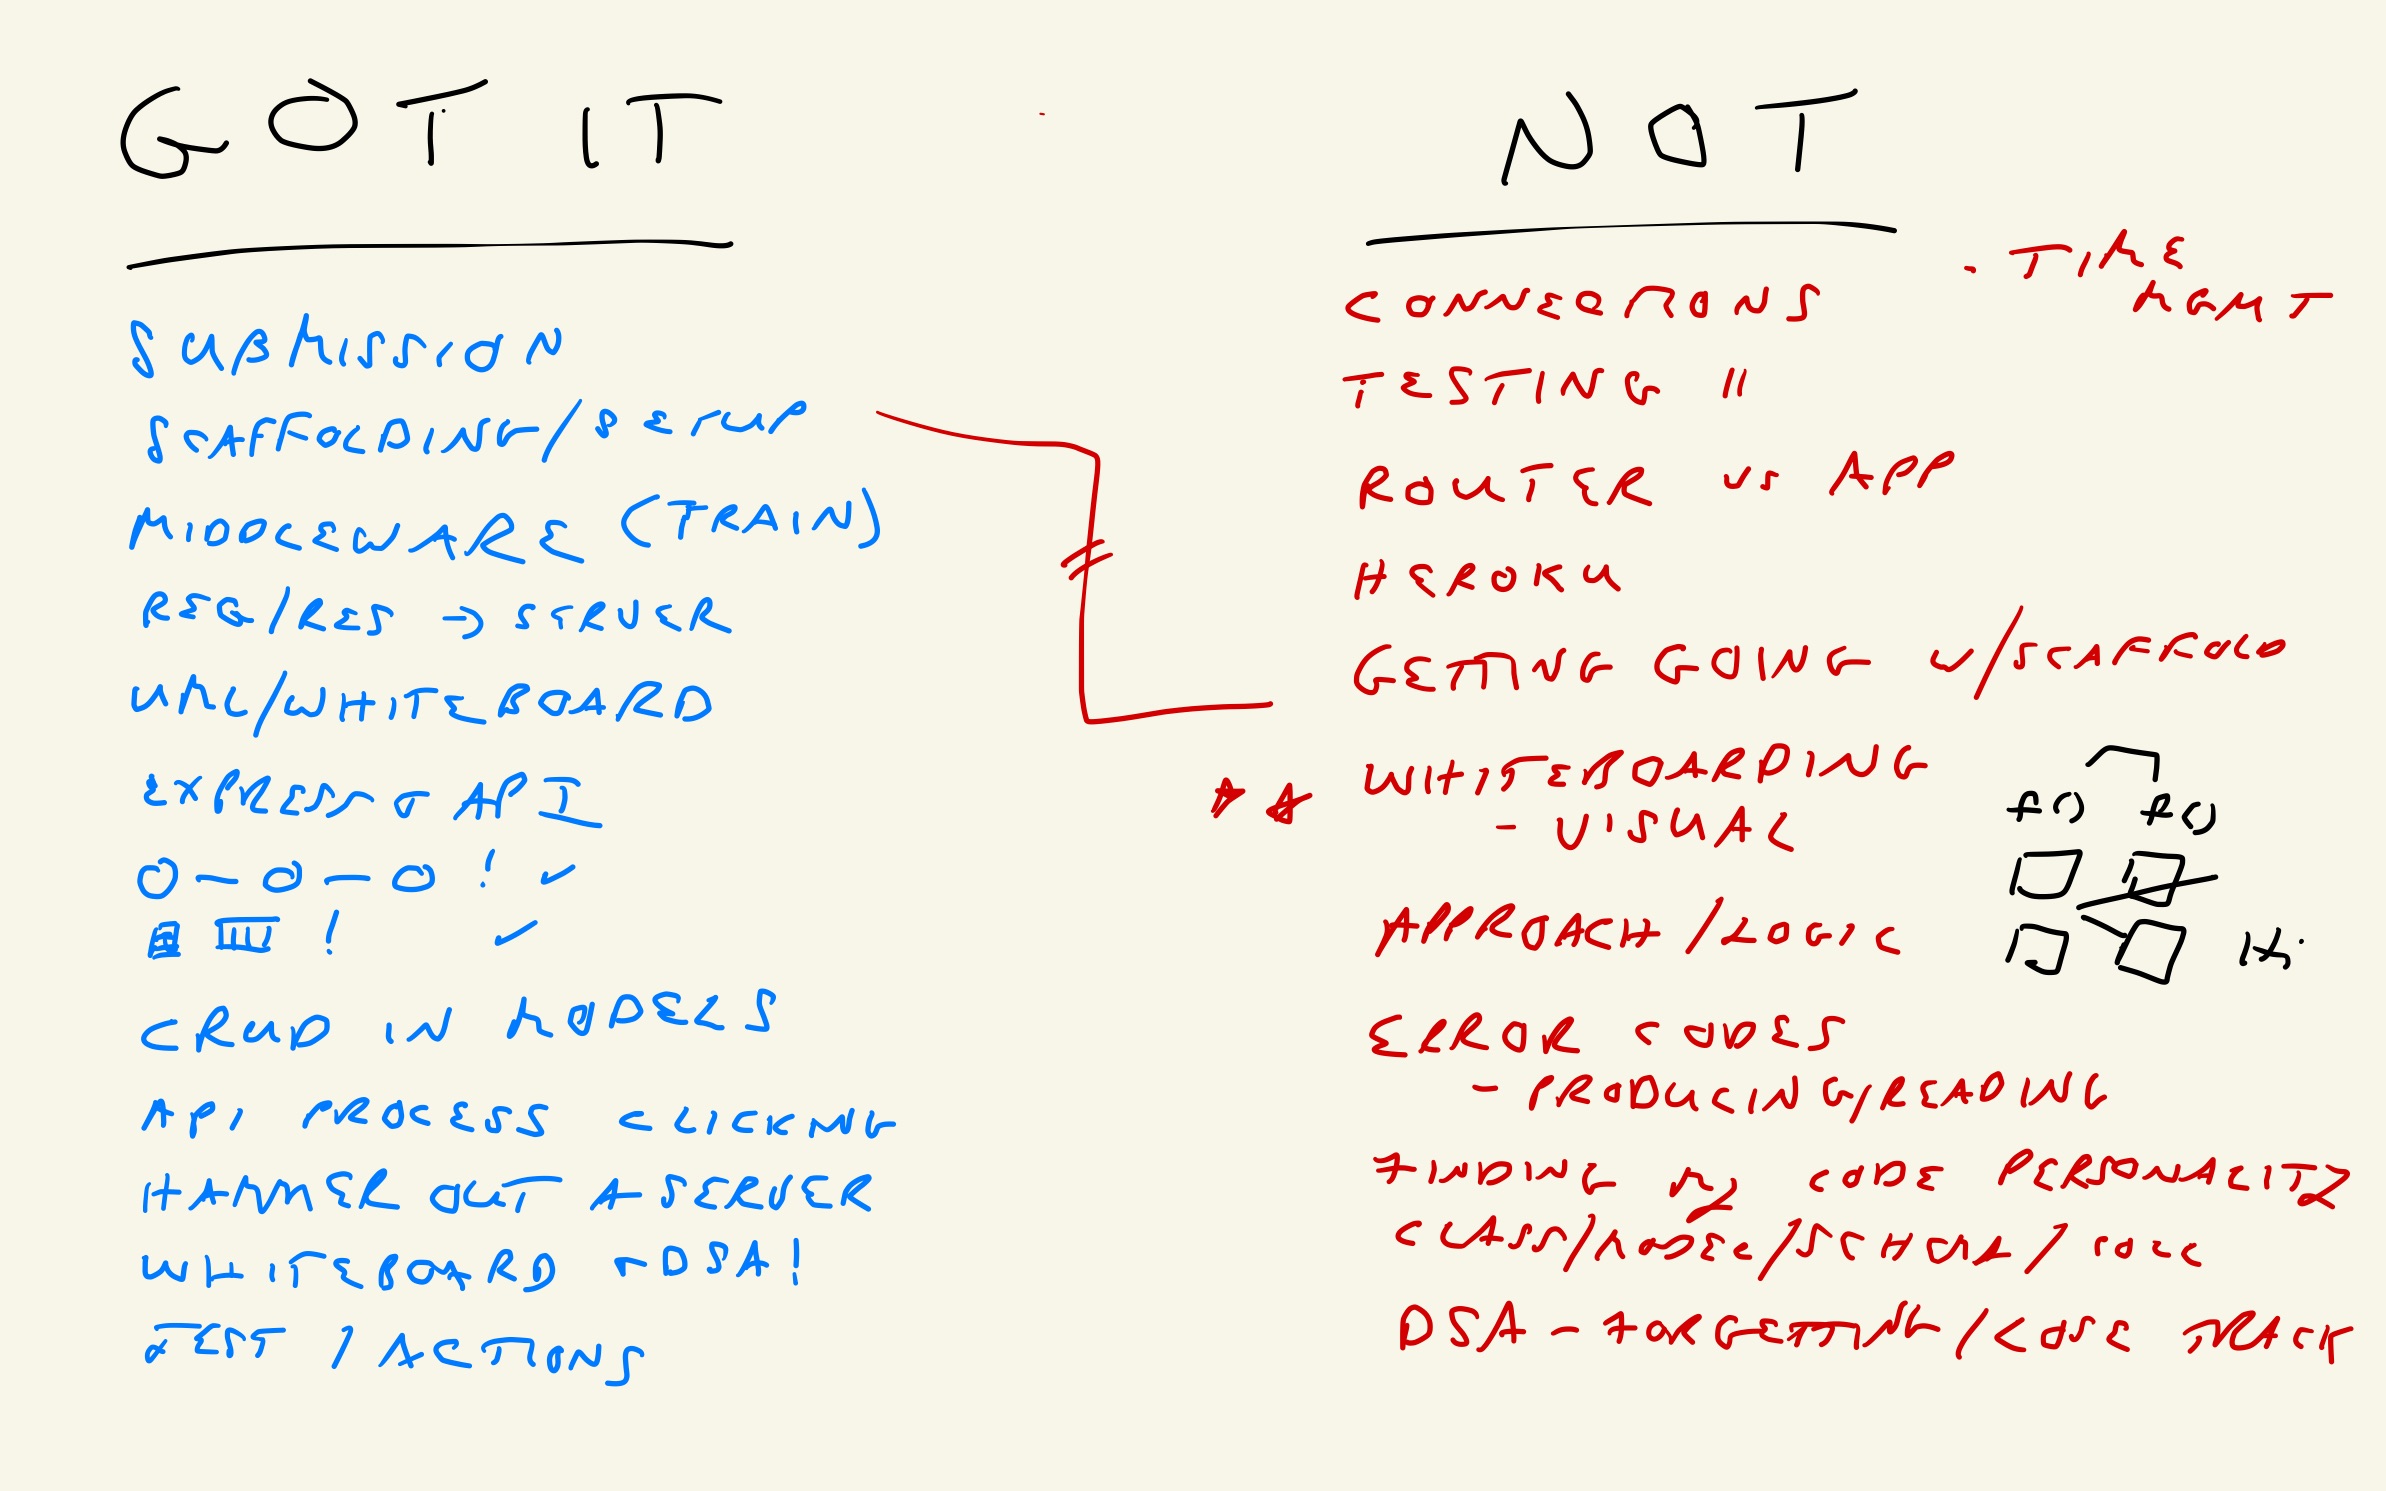 GOT IT
SUBMISSION
SCAFFOLDING/SETUP
MIDDLEWARE (TRAIN)
REQ/RES → SERVER
UML/WHITEBOARD
EXPRESS API
O-O-O ! ✓
! ✓
CRUD IN MODELS
API PROCESS CLICKING
HAMMER OUT A SERVER
WHITEBOARD - DSA!
TEST / ACTIONS
NOT
- TIME
MGMT
CONNECTIONS
TESTING "
ROUTER VS APP
HEROKU
GETTING GOING W/SCAFFOLD
WHITEBOARDING
- VISUAL
f() f()
APPROACH/LOGIC
ERROR CODES
- PRODUCING/READING
FINDING MY CODE PERSONALITY
CLASS/MODEL/SCHEMA/COLL
DSA - FORGETTING/LOSE TRACK